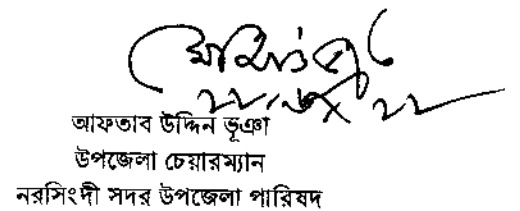 আফতাব উদ্দিন ভূঞা
উপজেলা চেয়ারম্যান
নরসিংদী সদর উপজেলা পারিষদ